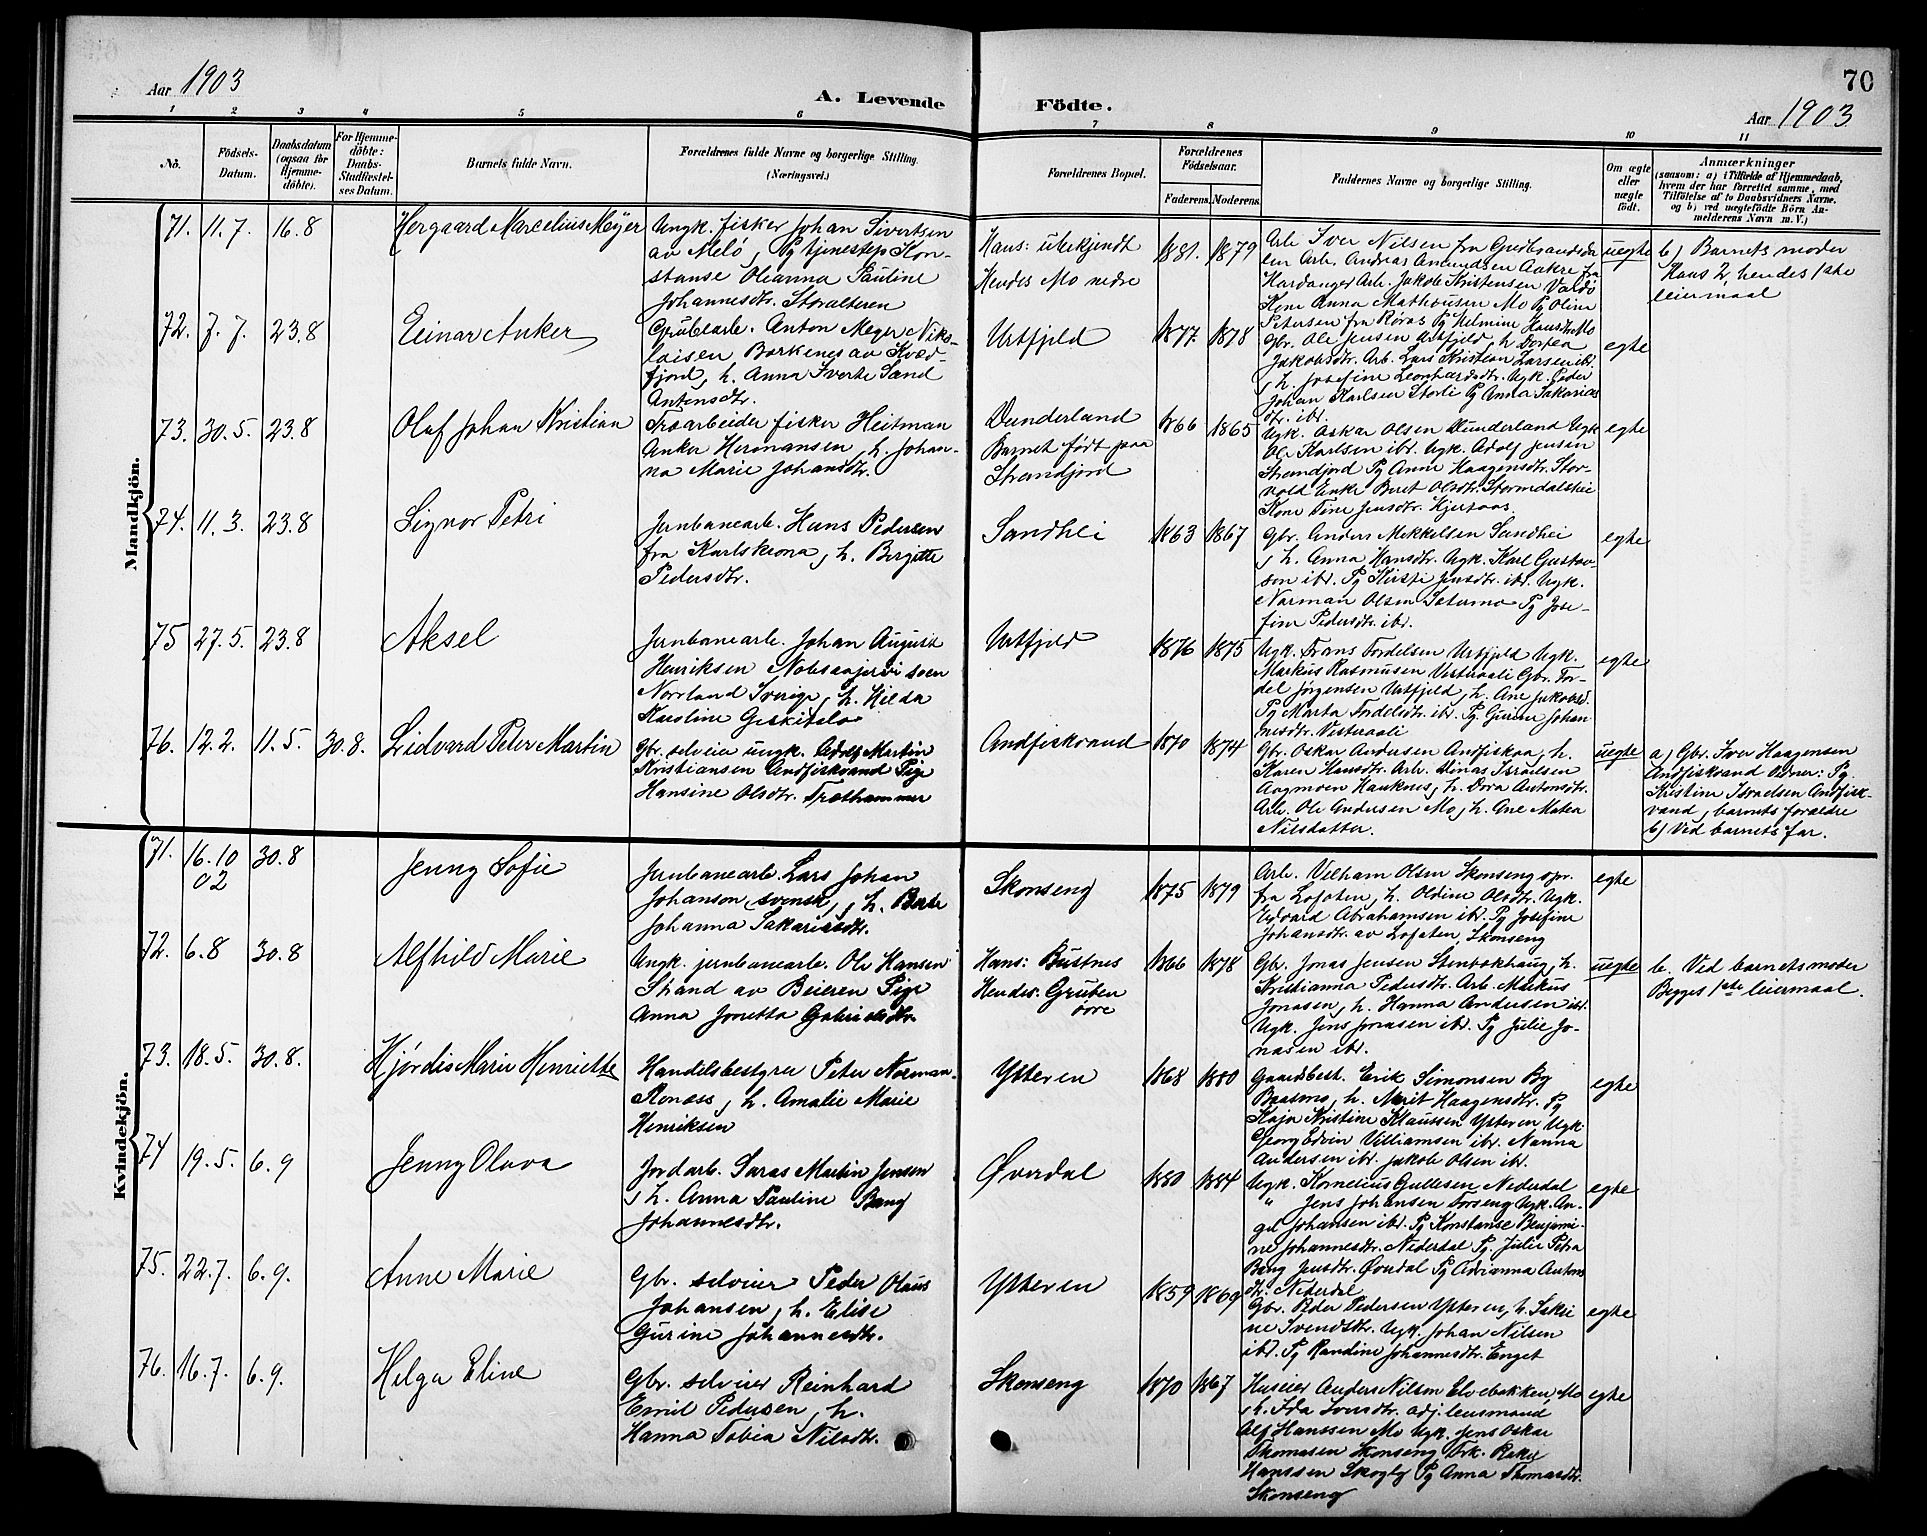 70
Aar 1903
A. Levende Födte.
Aar 1903
1 2 3 4 5 6 7 8 9 10 11
No.
Födsels-
Datum.
Daabsdatum
(ogsaa for
Hjemme-
döbte).
For Hjemme-
döbte:
Daabs-
Stadfæstel-
ses Datum.
Barnets fulde Navn.
Forældrenes fulde Navne og borgerlige Stilling.
(Næringsvei.)
Forældrenes Bopæl.
Forældrenes
Födselsaar.
Faderens. Moderens.
Faddernes Navne og borgerlige Stilling.
Om ægte
eller
uægte
födt.
Anmærkninger
(saasom: a) i Tilfælde af Hjemmedaab,
hvem der har forrettet samme, med
Tilföielse af to Daabsvidners Navne.
og b) ved uægtefödte Börn An-
melderens Navn m. V.)
Mandkjön.
71. 11.7. 16.8
Hergaard Marcelius Meyer
Ungk. fisker Johan Sivertsen
av Melö, Pg tjenestep. Kon-
stanse Oleanna Pauline
Johannesdtr. Storalteren
Hans: ubekjendt
Hendes Mo nedre
1881. 1879
Arb. Iver Nilsen fra Gudbrandsda
len Arb. Andreas Amundsen Aakre fra
Hardanger Arb. Jakob Kristensen Vardö
Kone Anna Mathousen Mo Pg Oline
Petersen fra Röros Pg Helmine Hansdtr. Mo
uegte
b) Barnets moder
Hans 2, hendes 1ste
leiermaal
72. 7.7. 23.8
Einar Anker
Grubearb. Anton Meyer Niko-
laisen Borkenes av Kvæd-
fjord, h. Anna Sverte Sand
Antonsdtr.
Urtfjeld
1877. 1878
Gbr. Ole Jensen Urtfjeld, h. Dortea
Jakobsdtr. Arb. Lars Kristian Larsen ibr.
, h. Josefine Leonhardsdtr. Ugk. Peder
Johan Karlsen Storli Pg Anna Sakarias
dtr. ibr.
egte
73. 30.5. 23.8
Olaf Johan Kristian
Træarbeider fisker Heitman
Anker Hermansen, h. Johan-
na Marie Johansdtr.
Dunderland
Barnet født paa
Strandjord
1866 1865
Ugk. Oskar Olsen Dunderland Ugk
Ole Karlsen ibr. Ugk. Adolf Jensen
Strandjord Pg Anne Haagensdtr. Stor-
vold Enke Beret Olsdtr. Stormdalshei
Kone Tine Jensdtr. Hjertaas.
egte
74. 11.3. 23.8
Signor Petri
Jernbanearb. Hans Pedersen
fra Karlskrona, h. Birgitte
Pedersdtr.
Sandhei
1863 1867
Gbr. Anders Mikkelsen Sandhei
, h. Anna Hansdtr. Ugk. Karl Gustav-
son ibr. Pg Kirsti Jensdtr. ibr. Ugk.
Norman Olsen Sætermo Pg Jose-
fine Pedersdtr. ibr.
egte
75 27.5. 23.8
Aksel
Jernbanearb. Johan August
Henriksen
Norrland Sverige, h. Hilda
Karoline
Urtfjeld
1876 1875
Ugk. Frans Tordelsen Urtfjeld Ugk.
Markus Rasmusen Vesteraali Gbr. Tor-
del Jørgensen Urtfjeld, h. Ane Jakobsd.
Pg Marta Tordelsdtr. ibr. Pg. Gurine Johan-
nesdtr. Vesteraali
egte
76. 12.2. 11.5. 30.8.
Lidvard Peter Martin
Gbr. selveier ungk. Adolf Martin
Kristiansen Andfiskvand Pige
Hansine Olsdtr. Træthammer
Andfiskvand
1870 1874
Gbr. Oskar Andersen Andfiskaa, h.
Karen Hansdtr. Arb. Dinas Israelsen
Aagmoen Hauknes, h. Dora Antonsdtr.
Arb. Ole Andersen Mo, h. Ane Matea
Nilsdatter.
uegte
a) Gbr. Iver Haagensen
Andfiskvand Vidner: Pg.
Kristine Israelsen Andfisk-
vand, barnets forældre
b) Ved barnets far.
Kvindekjön.
71. 16.10 30.8
02
Jenny Sofie
Jernbanearb. Lars Johan
Johanson (svensk), h. Berte
Johanna Sakariasdtr.
Skonseng
1875 1879
Arb. Vilham Olsen Skonseng opr.
fra Lofoten, h. Oldine Olsdtr. Ugk.
Edvard Abrahamsen ibr. Pg Josefine
Johansdtr. av Lofoten, Skonseng
egte
72. 6.8 30.8
Alfhild Marie
Ungk. jernbanearb. Ole Hansen
Strand av Beieren Pige
Anna Jonetta Gabrielsdtr.
Hans: Bustnes
Hendes: Gruben
övre
1866 1878
Gbr. Jonas Jensen Stenbakhaug, h.
Kristianna Pedersdtr. Arb. Markus
Jonasen, h. Hanna Andersen ibr.
Ugk. Jens Jonasen ibr. Pg Julie Jo-
nasen ibr.
uegte
b. Ved barnets moder
Begges 1ste leiermaal.
73. 18.5. 30.8.
Hjørdis Marie Henriette
Handelsbestyrer Peter Norman
Renæss, h. Amalie Marie
Henriksen
Ytteren
1868 1880
Gaardbest. Erik Simonsen By
Baasmo, h. Marit Haagensdtr. Pg
Kaja Kristine Klaussen Ytteren Ugk.
Georg Edvin Villiamsen ibr. Nanna
Andersen ibr. Jakob Olsen ibr.
egte
74 19.5. 6.9
Jenny Olava
Jordarb. Saras Martin Jensen
, h. Anna Pauline Bang
Johannesdtr.
Øverdal
1880 1884
Ugk. Kornelius Gullesen Nederdal
" Jens Johansen Forseng Ugk. An-
ge Johansen ibr. Pg Konstanse Benjami-
ne Johannesdtr. Nederdal Pg. Julie Petra
Bang Jensdtr. Øverdal Pg Adrianna Antons
dtr. Nederdal
egte
75. 22.7. 6.9.
Anne Marie
Gbr. selveier Peder Olaus
Johansen, h. Elise
Gurine Johannesdtr.
Ytteren
1859 1869
Gbr. Peder Pedersen Ytteren, h. Saki
ne Svendsdtr. Ugk. Johan Nilsen
ibr. Pg Randine Johannesdtr. Enget
egte
76. 16.7. 6.9.
Helga Eline
Gbr. selveier Reinhard
Emil Pedersen, h.
Hanna Tobia Nilsdtr.
Skonseng
1870 1867
Huseier Anders Nilsen Elvebakken, Mo
, h. Ida Iversdtr. adj. lensmand
Alf Hanssen Mo Ugk. Jens Oskar
Thomasen Skonseng Frk.
Hanssen Skogly Pg Anna Thomasdtr.
Skonseng
egte